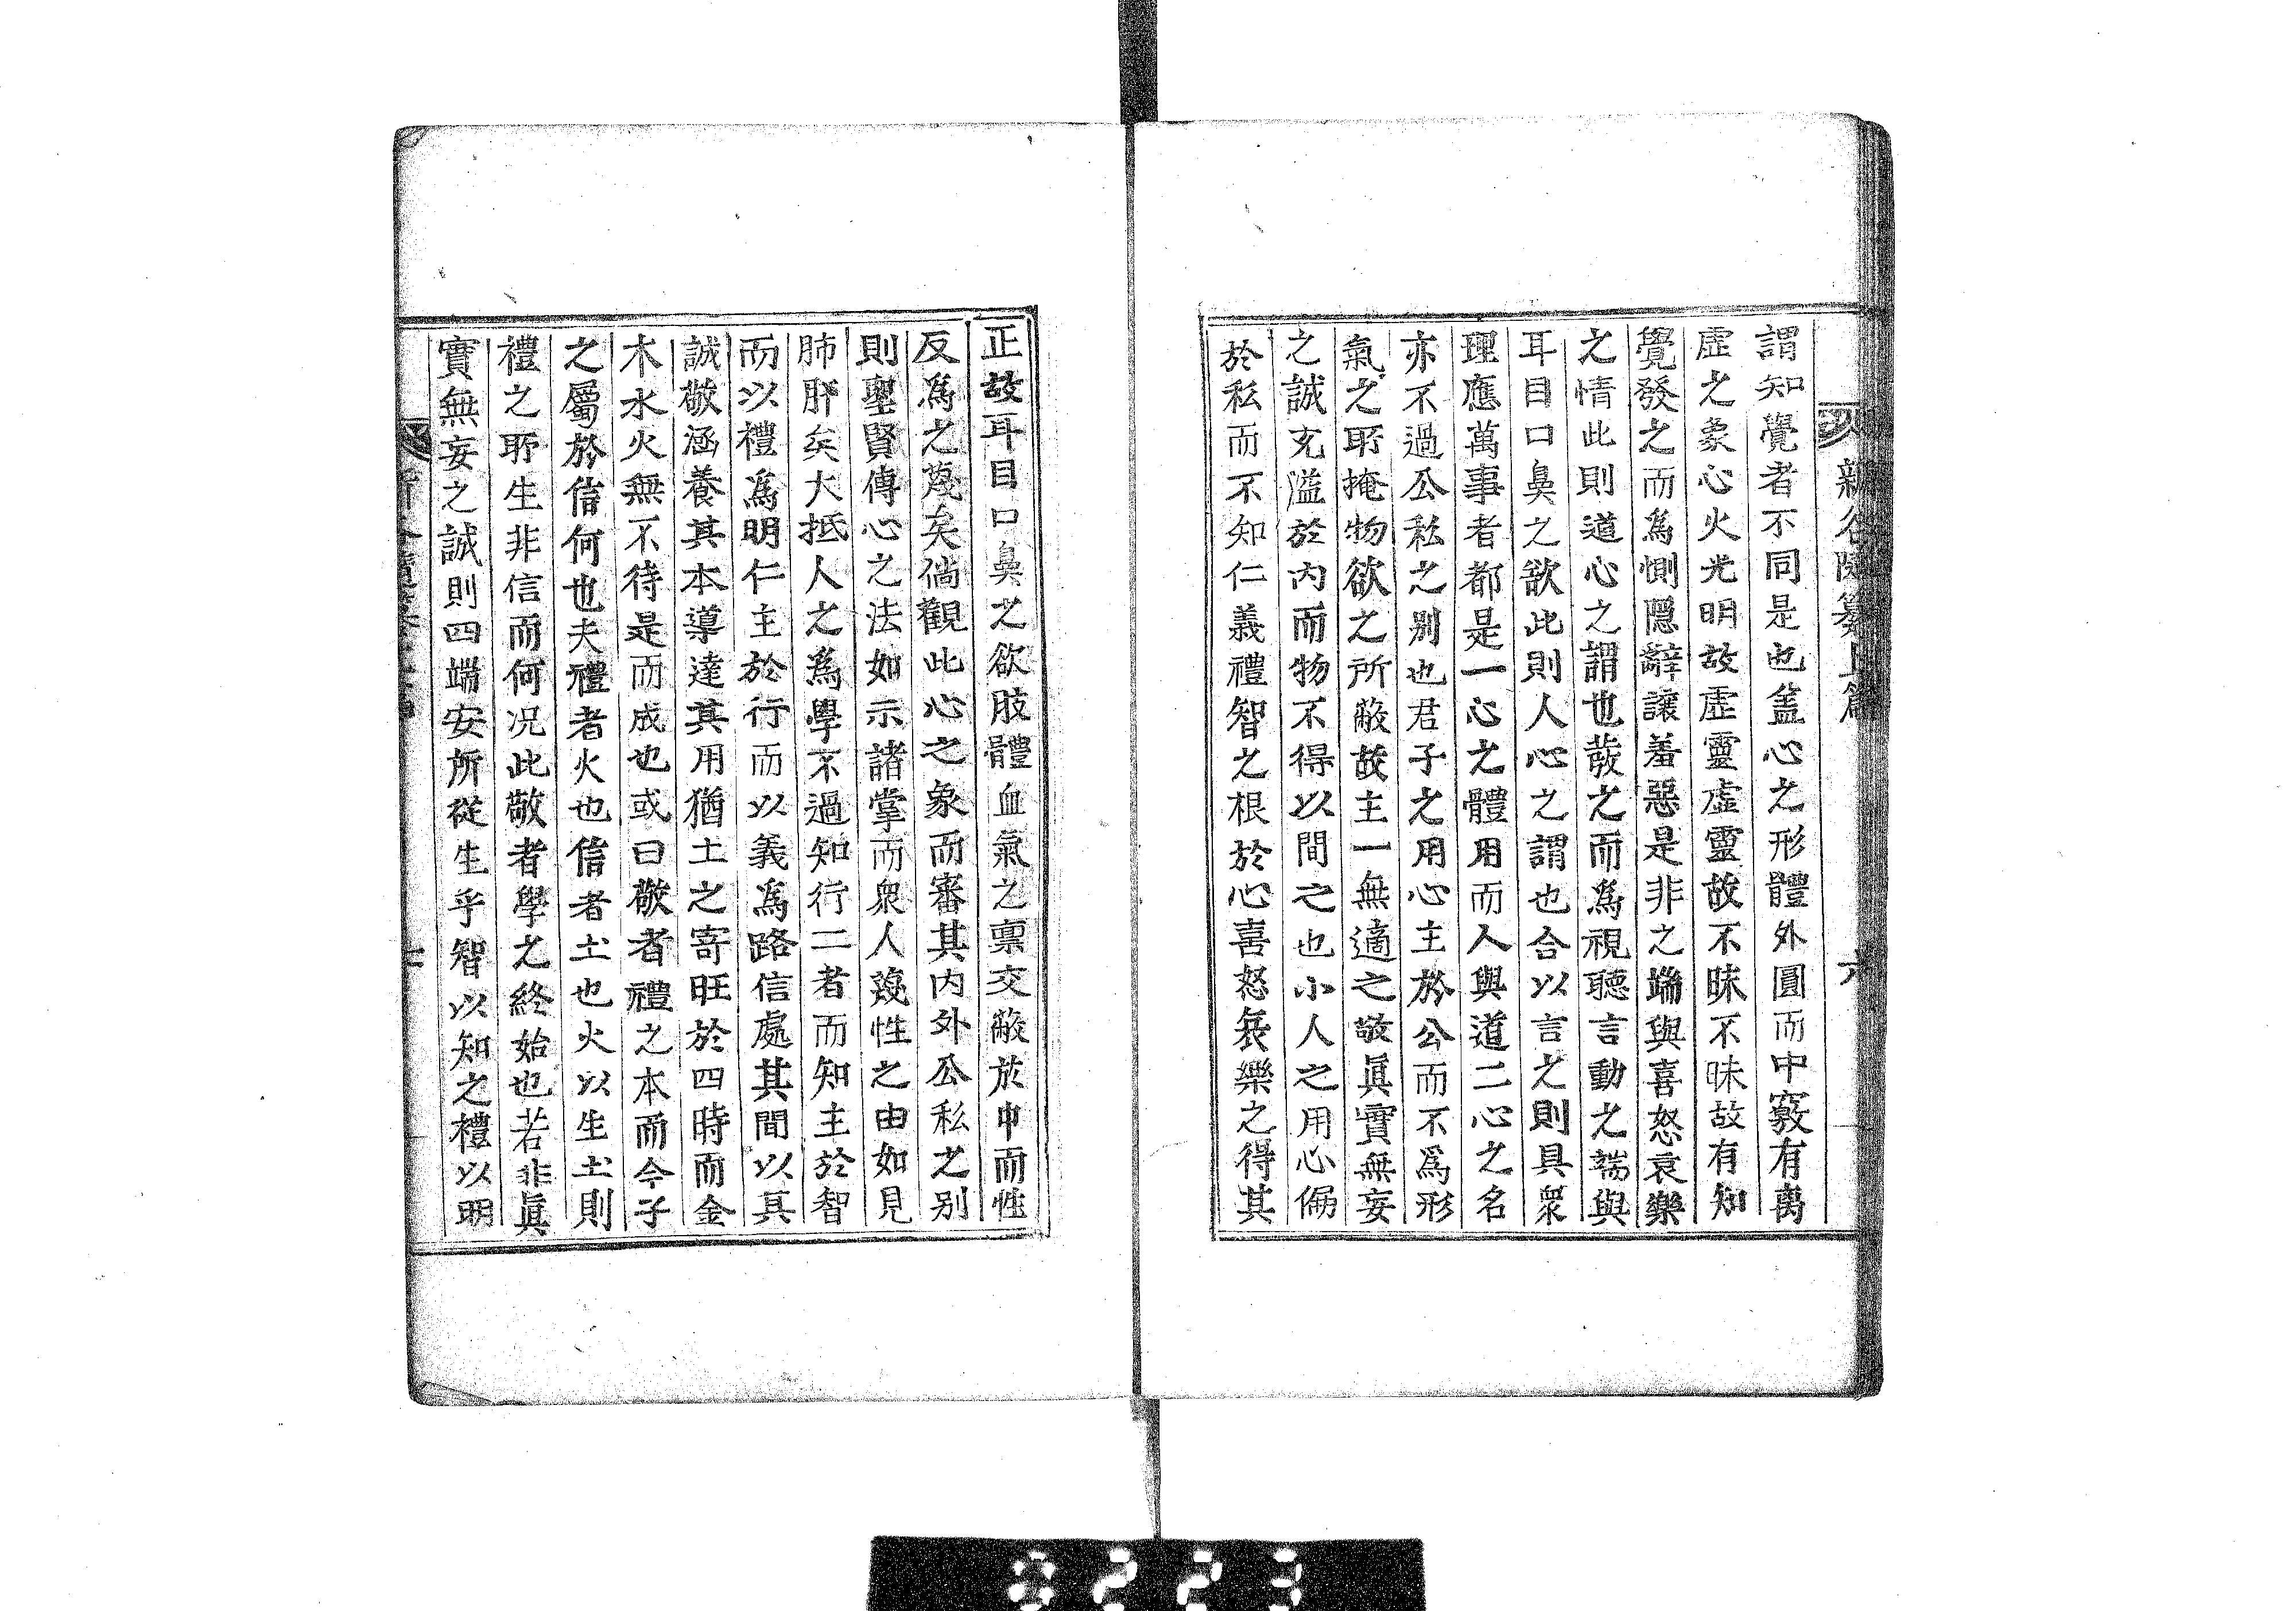 謂知覺者不同是也盖心之形體外圓而中竅有离
虛之象心火光明故虛靈虛靈故不昧不昧故有知
覺發之而爲惻隱辭讓羞惡是非之端與喜怒哀樂
之情此則道心之謂也發之而爲視聽言動之端與
耳目口鼻之欲此則人心之謂也合以言之則具衆
理應萬事者都是一心之體用而人與道二心之名
亦不過公私之別也君子之用心主於公而不爲形
氣之所掩物欲之所蔽故主一無適之敬眞實無妄
之誠充溢於內而物不得以間之也小人之用心偏
於私而不知仁義禮智之根於心喜怒哀樂之得其
正故耳目口鼻之欲肢體血氣之稟交蔽於中而性
反爲之蔑矣倘觀此心之象而審其內外公私之别
則聖賢傳心之法如示諸掌而衆人蔑性之由如見
肺肝矣大抵人之爲學不過知行二者而知主於智
而以禮爲明仁主於行而以義爲路信處其間以其
誠敬涵養其本導達其用猶土之寄旺於四時而金
木水火無不待是而成也或曰敬者禮之本而今子
之屬於信何也夫禮者火也信者土也火以生土則
禮之所生非信而何况此敬者學之終始也若非眞
實無妄之誠則四端安所從生乎智以知之禮以明
新谷隨纂上篇
六
0223